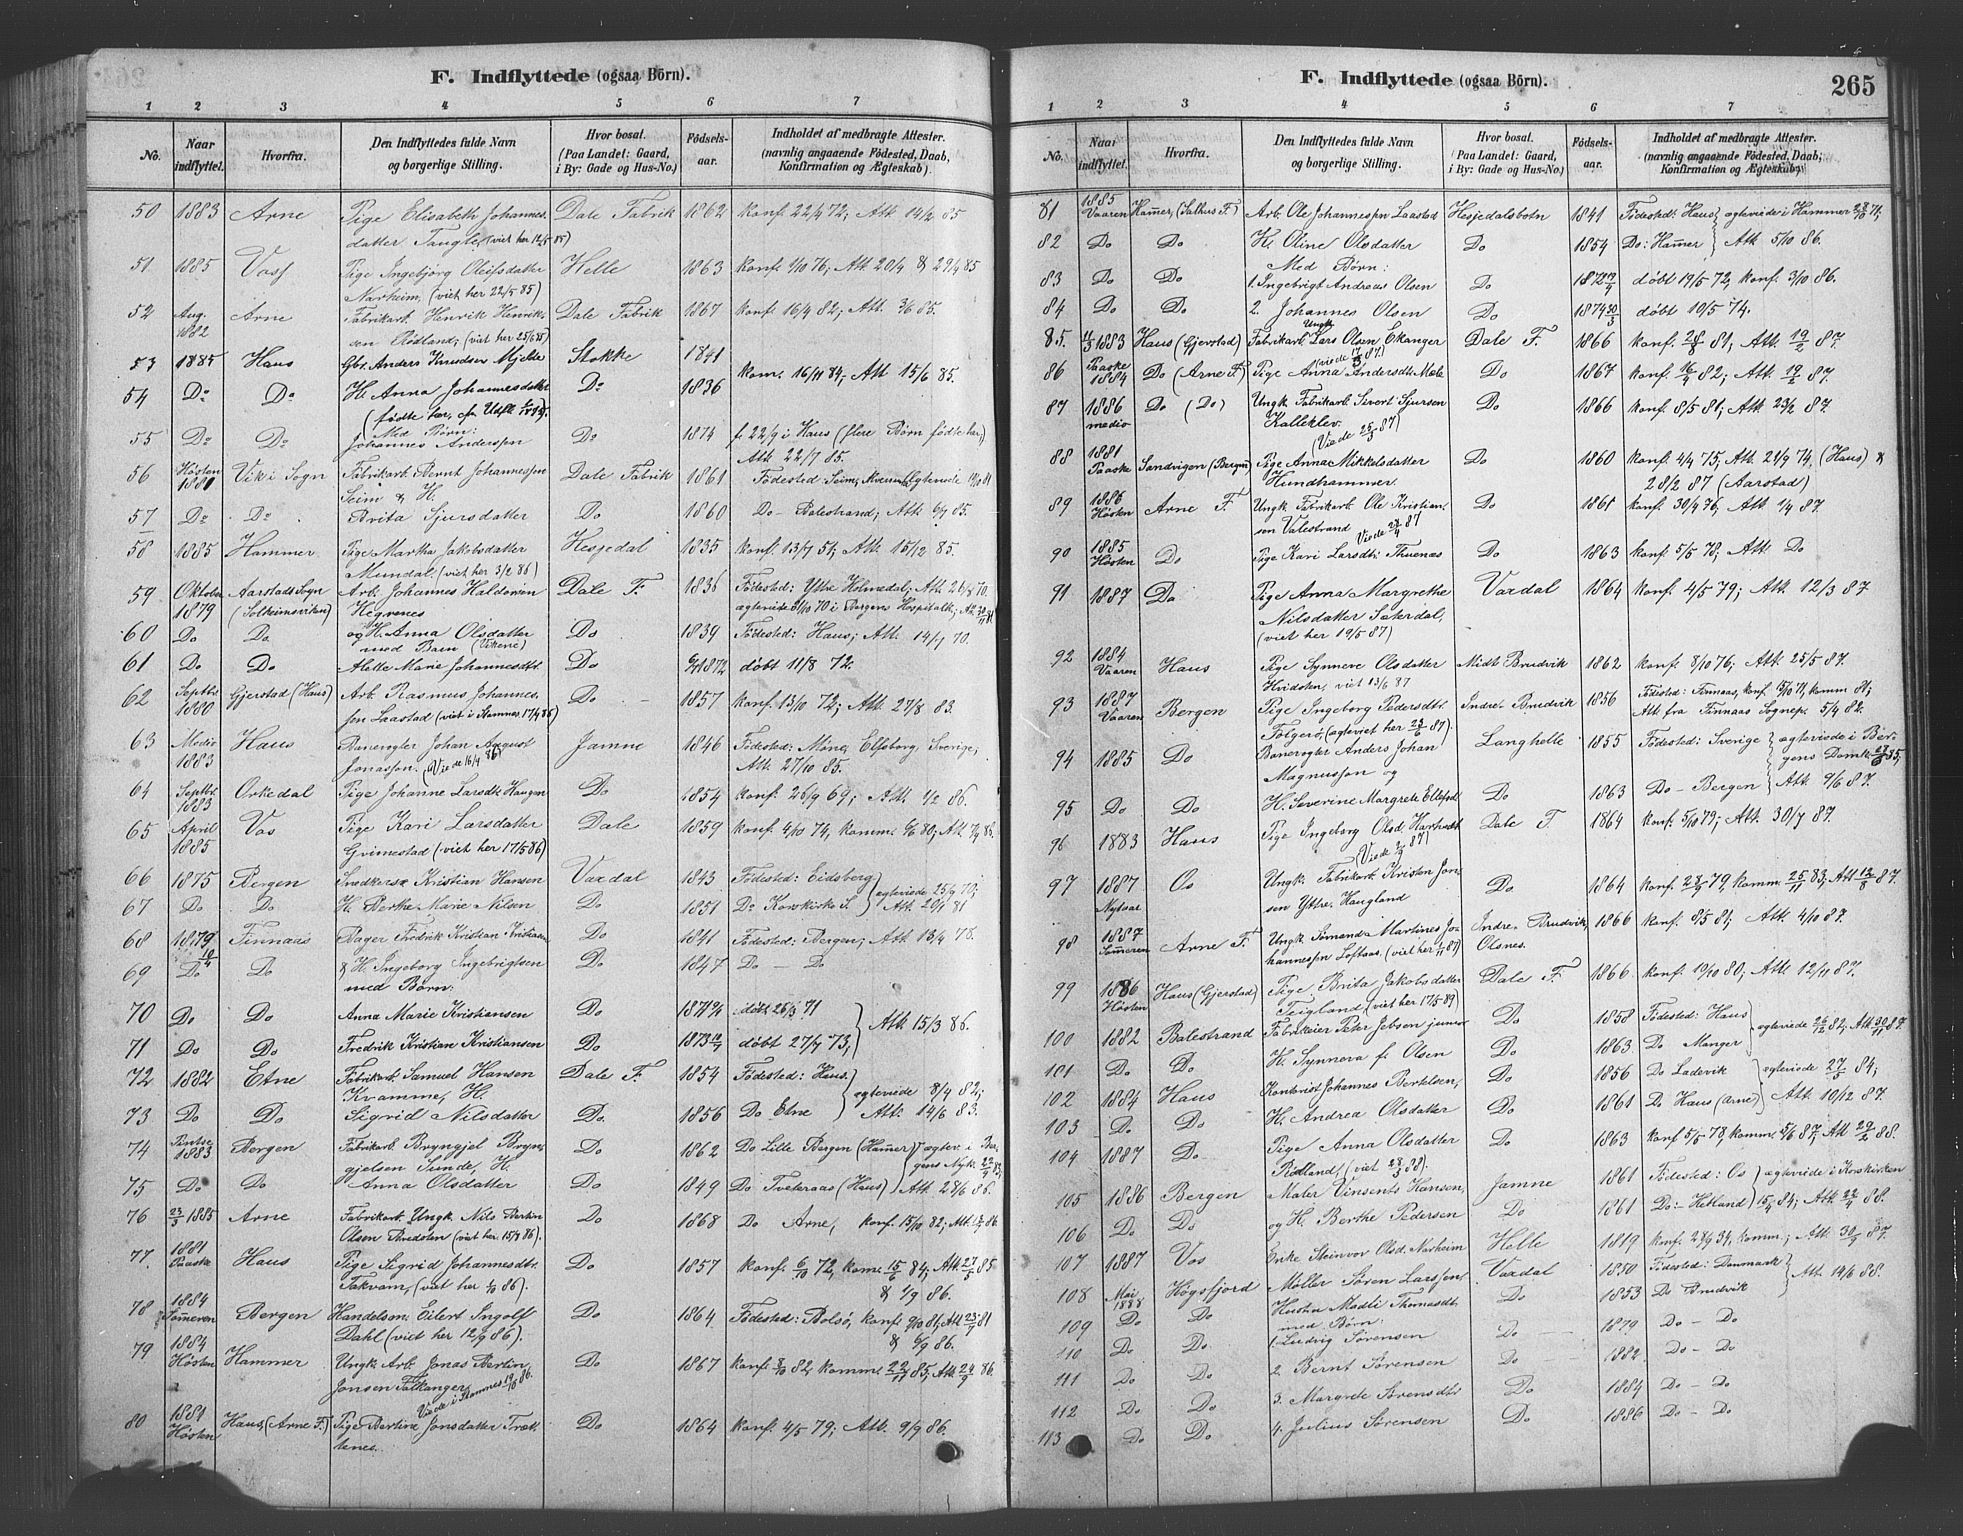 F. Indflyttede (ogsaa Börn).
1 2 3 4 5 6 7
No. Naar indflyttet. Hvorfra. Den Indflyttedes fulde Navn og borgerlige Stilling. Hvor bosat. (Paa Landet: Gaard, i By: Gade og Hus-No.) Födsels-aar. Indholdet af medbragte Attester. (navnlig angaaende Födested, Daab, Konfirmation og Ægteskab).
50 1883 Arne Pige Elisabeth Johannes- Dale Fabrik 1862 Konf. 22/4 72; Att. 14/2 85
datter Tangle, (viet her 12/5 85)
51 1885 Voss Pige Ingebjörg Oleifsdatter Helle 1863 Konf. 1/10 76; Att. 20/4 & 29/4 85
Narheim, (viet her 22/5 85)
52 Aug. 1882 Arne Fabrikarb. Henrik Henrik- Dale Fabrik 1867 Konf. 16/4 82, Att. 3/6 85.
sen Rödland; (viet her 25/6 85)
53 1885 Haus Gbr. Anders Knudsen Mjelde Stokke 1841
54 Do Do H. Anna Johannesdatter Do 1836 kom. 16/11 84; Att. 15/6 85.
Med Børn:
55 Do Do Johannes Anderssen Do 1874 f. 22/9 i Haus (flere Börn födte her,)
Att. 22/7 85.
56 Høsten 1881 Vik i Sogn Fabrikarb. Bernt Johannessen Dale Fabrik 1861 Födested Seim, Ægteviede
Seim & H.
57 Do Do Brita Sjursdatter Do 1860 Do – Balestrand; Att. 6/7 85.
58 1885 Hammer Pige Martha Jakobsdatter Hesjedal 1835 Konf. 13/7 51; Att. 15/12 85.
Mundal (viet her 3/2 86)
59 Oktober 1879 Aarstads Sogn (Solheimsviken) Arb. Johannes Haldorsen Dale F. 1836 Födested: Ytre Holmedal,
Hegrenes ægteviede i Bergens Hospitalk;
60 Do Do og H. Anna Olsdatter Do 1839 Födested: Haus; Att. 14/1 70.
med Barn (Vikene)
61 Do Do Alette Marie Johannesdtr. Do 1872 döbt 11/8 72.
62 Septbr. 1880 Gjerstad (Haus) Arb. Rasmus Johannes- Do 1857 Konf. 13/10 72; Att. 27/8 83.
sen Laastad (viet i Stamnes 17/4 86)
63 Medio 1883 Haus Banevogter Johan August Jamne 1846 Födested: Möne, Elfsborg, Sverige;
Jonassen. (Viede 16/4 86) Att. 27/10 85.
64 Septbr. 1883 Orkedal Pige Johanne Larsdtr. Haugen Do 1854 Konf. 26/9 69; Att. 1/2 86.
65 April 1885 Vos Pige Kari Larsdatter Dale 1859 Konf. 4/10 74, Komm. 80;
Grimestad (viet her 17/5 86)
66 1875 Bergen Snedkersv. Kristian Hansen Vaxdal 1843 Födested: Eidsberg
67 Do Do H. Berthe Marie Nilsen Do 1851 Do Korskirke S. ægteviede 25/9 70; Att. 20/1 81
68 1879 Finnaas Bager Fredrik Kristian Kristiansen Do 1841 Födested: Bergen; Att. 13/4 78.
69 Do Do & H. Ingeborg Ingebrigtsen Do 1847 Do – Do
med Børn:
70 Do Do Anna Marie Kristiansen Do 1871 döbt 26/3 71
71 Do Do Fredrik Kristian Kristiansen Do 1873 döbt 27/7 73; Att. 15/3 86.
72 1882 Etne Fabrikarb. Samuel Hansen Dale F. 1854 Födested: Haus.
Kvamme, H. ægteviede 8/4 82;
73 Do Do Sigrid Nilsdatter Do. 1856 Do Etne Att. 14/6 83.
74 Pintse 1883 Bergen Fabrikarb. Bryngjel Bryn- Do 1862 Do Lille Bergen (Hamer) ægtev. i Ber-
gjelsen Sunde, H. gens Nyk.
75 Do Do Anna Olsdatter Do 1849 Do Tveteraas (Haus) Att. 28/6 86.
76 23/3 1885 Arne Fabrikarb. Ungk. Nils Bertin Do 1868 Do Arne, Konf. 15/10 82;
Olsen Bredsten (viet her 15/4 86).
77. 1881 Paaske Haus Pige Sigrid Johannesdtr. Do 1857 Konf. 6/10 72, kom. 15/6 84; Att. 27/5 85
Takvam, (viet her 86). & 1/9 86.
78 1884 Sommeren Bergen Handelsm. Eilert Ingolf Do 1864 Födested: Bolsö, Konf. 81, Att. 81
Dahl (viet her 12/9 86). & 6/9 86.
79 1884 Høsten Hammer Ungk. Arb. Jonas Bertin Do 1867 Konf. 82, komm. 85; Att. 24/9 86.
Jonsen Falkanger Viede i Stamnes
80 1881 Høsten Haus, (Arne F.) Pige Bertine Jonsdatter Træt- Do 1864 Konf. 4/5 79; Att. 9/9 86.
tenes.
F. Indflyttede (ogsaa Börn).
265
1 2 3 4 5 6 7
No. Naar indflyttet. Hvorfra. Den Indflyttedes fulde Navn og borgerlige Stilling. Hvor bosat. (Paa Landet: Gaard, i By: Gade og Hus-No.) Födsels-aar. Indholdet af medbragte Attester. (navnlig angaaende Födested, Daab, Konfirmation og Ægteskab)
81 1885 Vaaren Hamer, (Salhus F.) Arb. Ole Johannessen Laastad Hesjedalsbotn 1841 Födested: Haus ægteviede i Hammer 71;
82 Do Do H. Oline Olsdatter Do 1854 Do: Hamer Att. 5/10 86.
Med Børn:
83 Do Do 1. Ingebrigt Andreas Olsen Do 1872 döbt 19/5 72, Konf. 3/10 86.
84 Do Do 2. Johannes Olsen Do 1874 döbt 10/5 74.
85. 1883 Haus (Gjerstad) Fabrikarb. Ungk. Lars Olsen Ekanger Dale F. 1866 Konf. 28/8 81, Att. 19/2 87.
86 Paaske 1884 Do (Arne F.) Pige Anna Andersdtr. Mæle Do 1867 Konf. 16/4 82; Att. 19/2 87.
87 1886 medio Do (Do) Ungk. Fabrikarb. Sivert Sjursen Do 1866 Konf. 8/5 81; Att. 23/2 87.
Kalleklev. (Viede 25/3 87)
88 1881 Paaske Sandvigen (Bergen) Pige Anna Mikkelsdatter Do 1860 Konf. 4/4 75; Att. 21/9 74, (Haus) &
Hundhammer. 28/2 87 (Aarstad)
89 1886 Høsten Arne F. Ungk. Fabrikarb. Ole Kristian- Do 1861 Konf. 30/4 76, Att. 1/4 87.
sen Valestrand Viede 87
90 1885 Høsten Do Pige Kari Larsdtr. Thuenæs Do 1863 Konf. 5/5 78, Att. Do
91 1887 Do Pige Anna Margrethe Vaxdal 1864 Konf. 4/5 79; Att. 12/3 87
Nilsdatter Sæterdal,
(viet her 19/5 87)
92 1884 Vaaren Haus Pige Synneve Olsdatter Midt Brudvik 1862 Konf. 8/10 76; Att. 25/5 87.
Hvidsten, viet 13/6 87
93 1887 Vaaren Bergen Pige Ingeborg Pedersdtr. Indre Brudvik 1856 Födested: Finnaas, Konf. 15/10 71, komm. 81;
Folgerö, (ægteviet her 23/6 87). Att. fra Finnaas Sognep. 5/4 82.
94 1885 Do Banevogter Anders Johan Langhelle 1855 Födested: Sverige ægteviede i Ber-
Magnussen og gens Domk. 85,
95 Do Do H. Severine Margrete Ellefsd. Do 1863 Do – Bergen Att. 9/6 87.
96 1883 Haus Pige Ingeborg Olsd. Hartveit Dale F. 1864 Konf. 5/10 79; Att. 30/7 87.
97 1887 Nytaar Os Ungk. Fabrikarb. Kristen Jon- Do 1864 Konf. 79, komm. 25/11 83, Att. 13/8 87.
sen Yttre Haugland
98 1887 Sommeren Arne F. Ungk. Simonds Martines Jo- Indre Brudvik, 1866 Konf. 8/5 81; Att. 4/10 87.
hannessen Loftaas. (viet her 87) Olsnes.
99 1886 Høsten Haus (Gjerstad) Pige Brita Jakobsdatter Dale F. 1866 Konf. 10/10 80; Att. 12/11 87.
Teigland, (viet her 17/5 89)
100 1882 Balestrand Fabrikeier Peter Jebsen junior Do 1858 Födested: Haus
101 Do Do H. Synneva f. Olsen Do 1863 Do Manger ægteviede 82,
102 1884 Haus Kontorist Johannes Bertelsen, Do 1856 Do Ladevik ægteviede 27/5 84;
103 Do Do H. Andrea Olsdatter Do 1861 Do Haus (Arne) Att. 10/12 87.
104 1887 Do Pige Anna Olsdatter Do 1863 Konf. 5/5 78, komm. 5/6 87; Att. 29/2 88.
Rödland (viet 88).
105 1886 Bergen Maler Vinsents Hansen, Jamne 1861 Födested: Os ægteviede i Korskirken
106 Do Do og H. Berthe Pedersen Do 1861 Do: Hetland 84; Att. 88.
107 1887 Vos Enke Steinvor Olsd. Narheim Helle 1819 Konf. 28/9 34, komm.; Att. 30/9 87.
108 Mai 1888 Högsfjord Møller Søren Larssen, Vaxdal 1850 Födested: Danmark
109 Do Do Hustru Madli Thomasdtr. Do 1853 Do Brudvik Att. 14/6 88.
med Børn:
110 Do Do 1. Ludvig Sørensen Do 1879 Do – Do
111 Do Do 2 Bernt Sørensen Do 1882 Do – Do
112 Do Do 3. Margrete Sørensdtr. Do 1884 Do – Do
113 Do Do 4. Julius Sørensen Do 1886 Do – Do